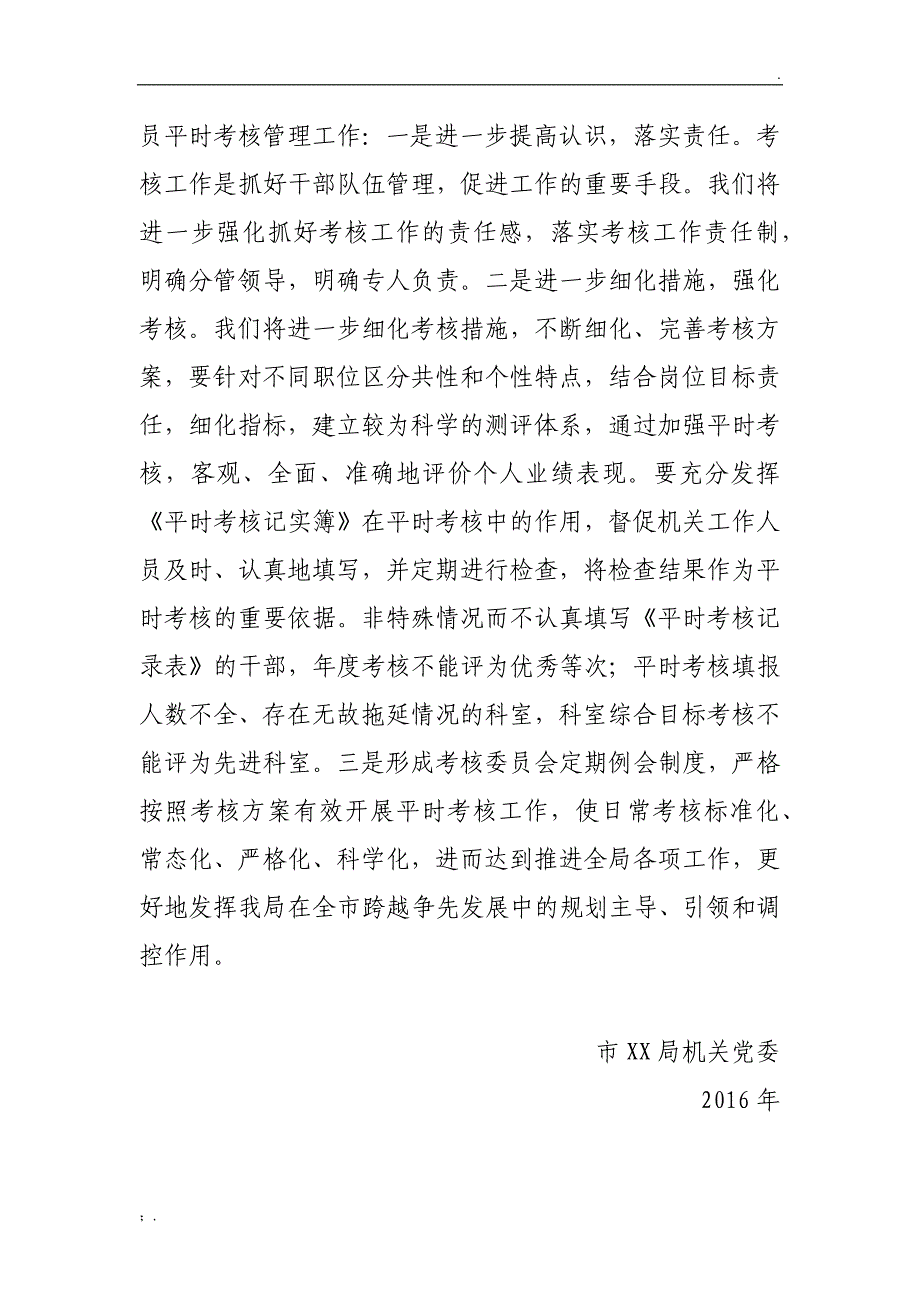 .
员平时考核管理工作：一是进一步提高认识，落实责任。考
核工作是抓好干部队伍管理，促进工作的重要手段。我们将
进一步强化抓好考核工作的责任感，落实考核工作责任制，
明确分管领导，明确专人负责。二是进一步细化措施，强化
考核。我们将进一步细化考核措施，不断细化、完善考核方
案，要针对不同职位区分共性和个性特点，结合岗位目标责
任，细化指标，建立较为科学的测评体系，通过加强平时考
核，客观、全面、准确地评价个人业绩表现。要充分发挥
《平时考核记实簿》在平时考核中的作用，督促机关工作人
员及时、认真地填写，并定期进行检查，将检查结果作为平
时考核的重要依据。非特殊情况而不认真填写《平时考核记
录表》的干部，年度考核不能评为优秀等次；平时考核填报
人数不全、存在无故拖延情况的科室，科室综合目标考核不
能评为先进科室。三是形成考核委员会定期例会制度，严格
按照考核方案有效开展平时考核工作，使日常考核标准化、
常态化、严格化、科学化，进而达到推进全局各项工作，更
好地发挥我局在全市跨越争先发展中的规划主导、引领和调
控作用。
市 XX 局机关党委
2016 年
; .